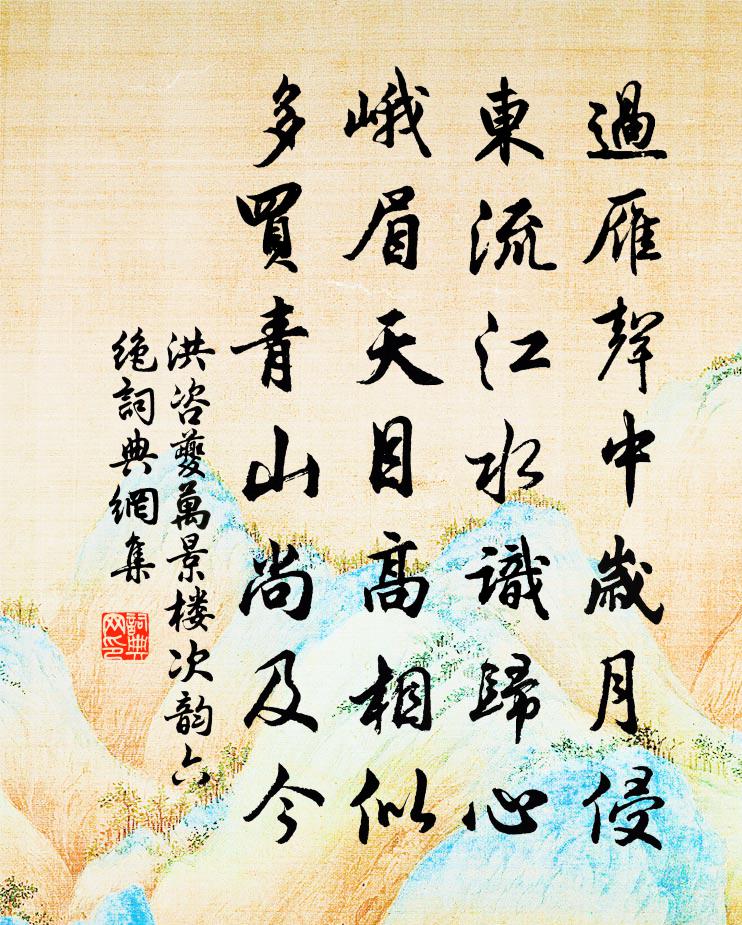 過雁聲中歲月侵
東流江水識歸心
峨眉天目高相似
多買青山尚及今
洪咨夔萬景楼次韵六
絶詞典網集
詞典
网印